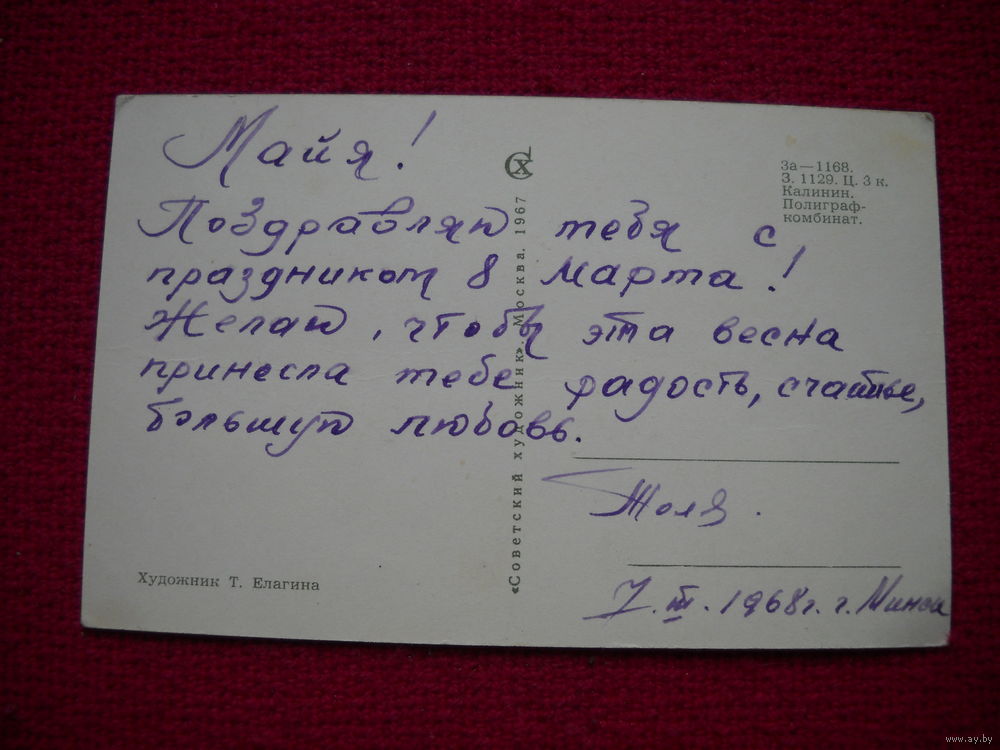 Майя!
Поздравляю тебя с
праздником 8 марта!
Желаю, чтобы эта весна
принесла тебе радость, счастье,
большую любовь.
Толя.
7.III.1968г. г. Минск
СХ
За—1168.
З. 1129. Ц. 3 к.
Калинин.
Полиграф-
комбинат.
«Советский художник». Москва. 1967
Художник Т. Елагина
www.ay.by